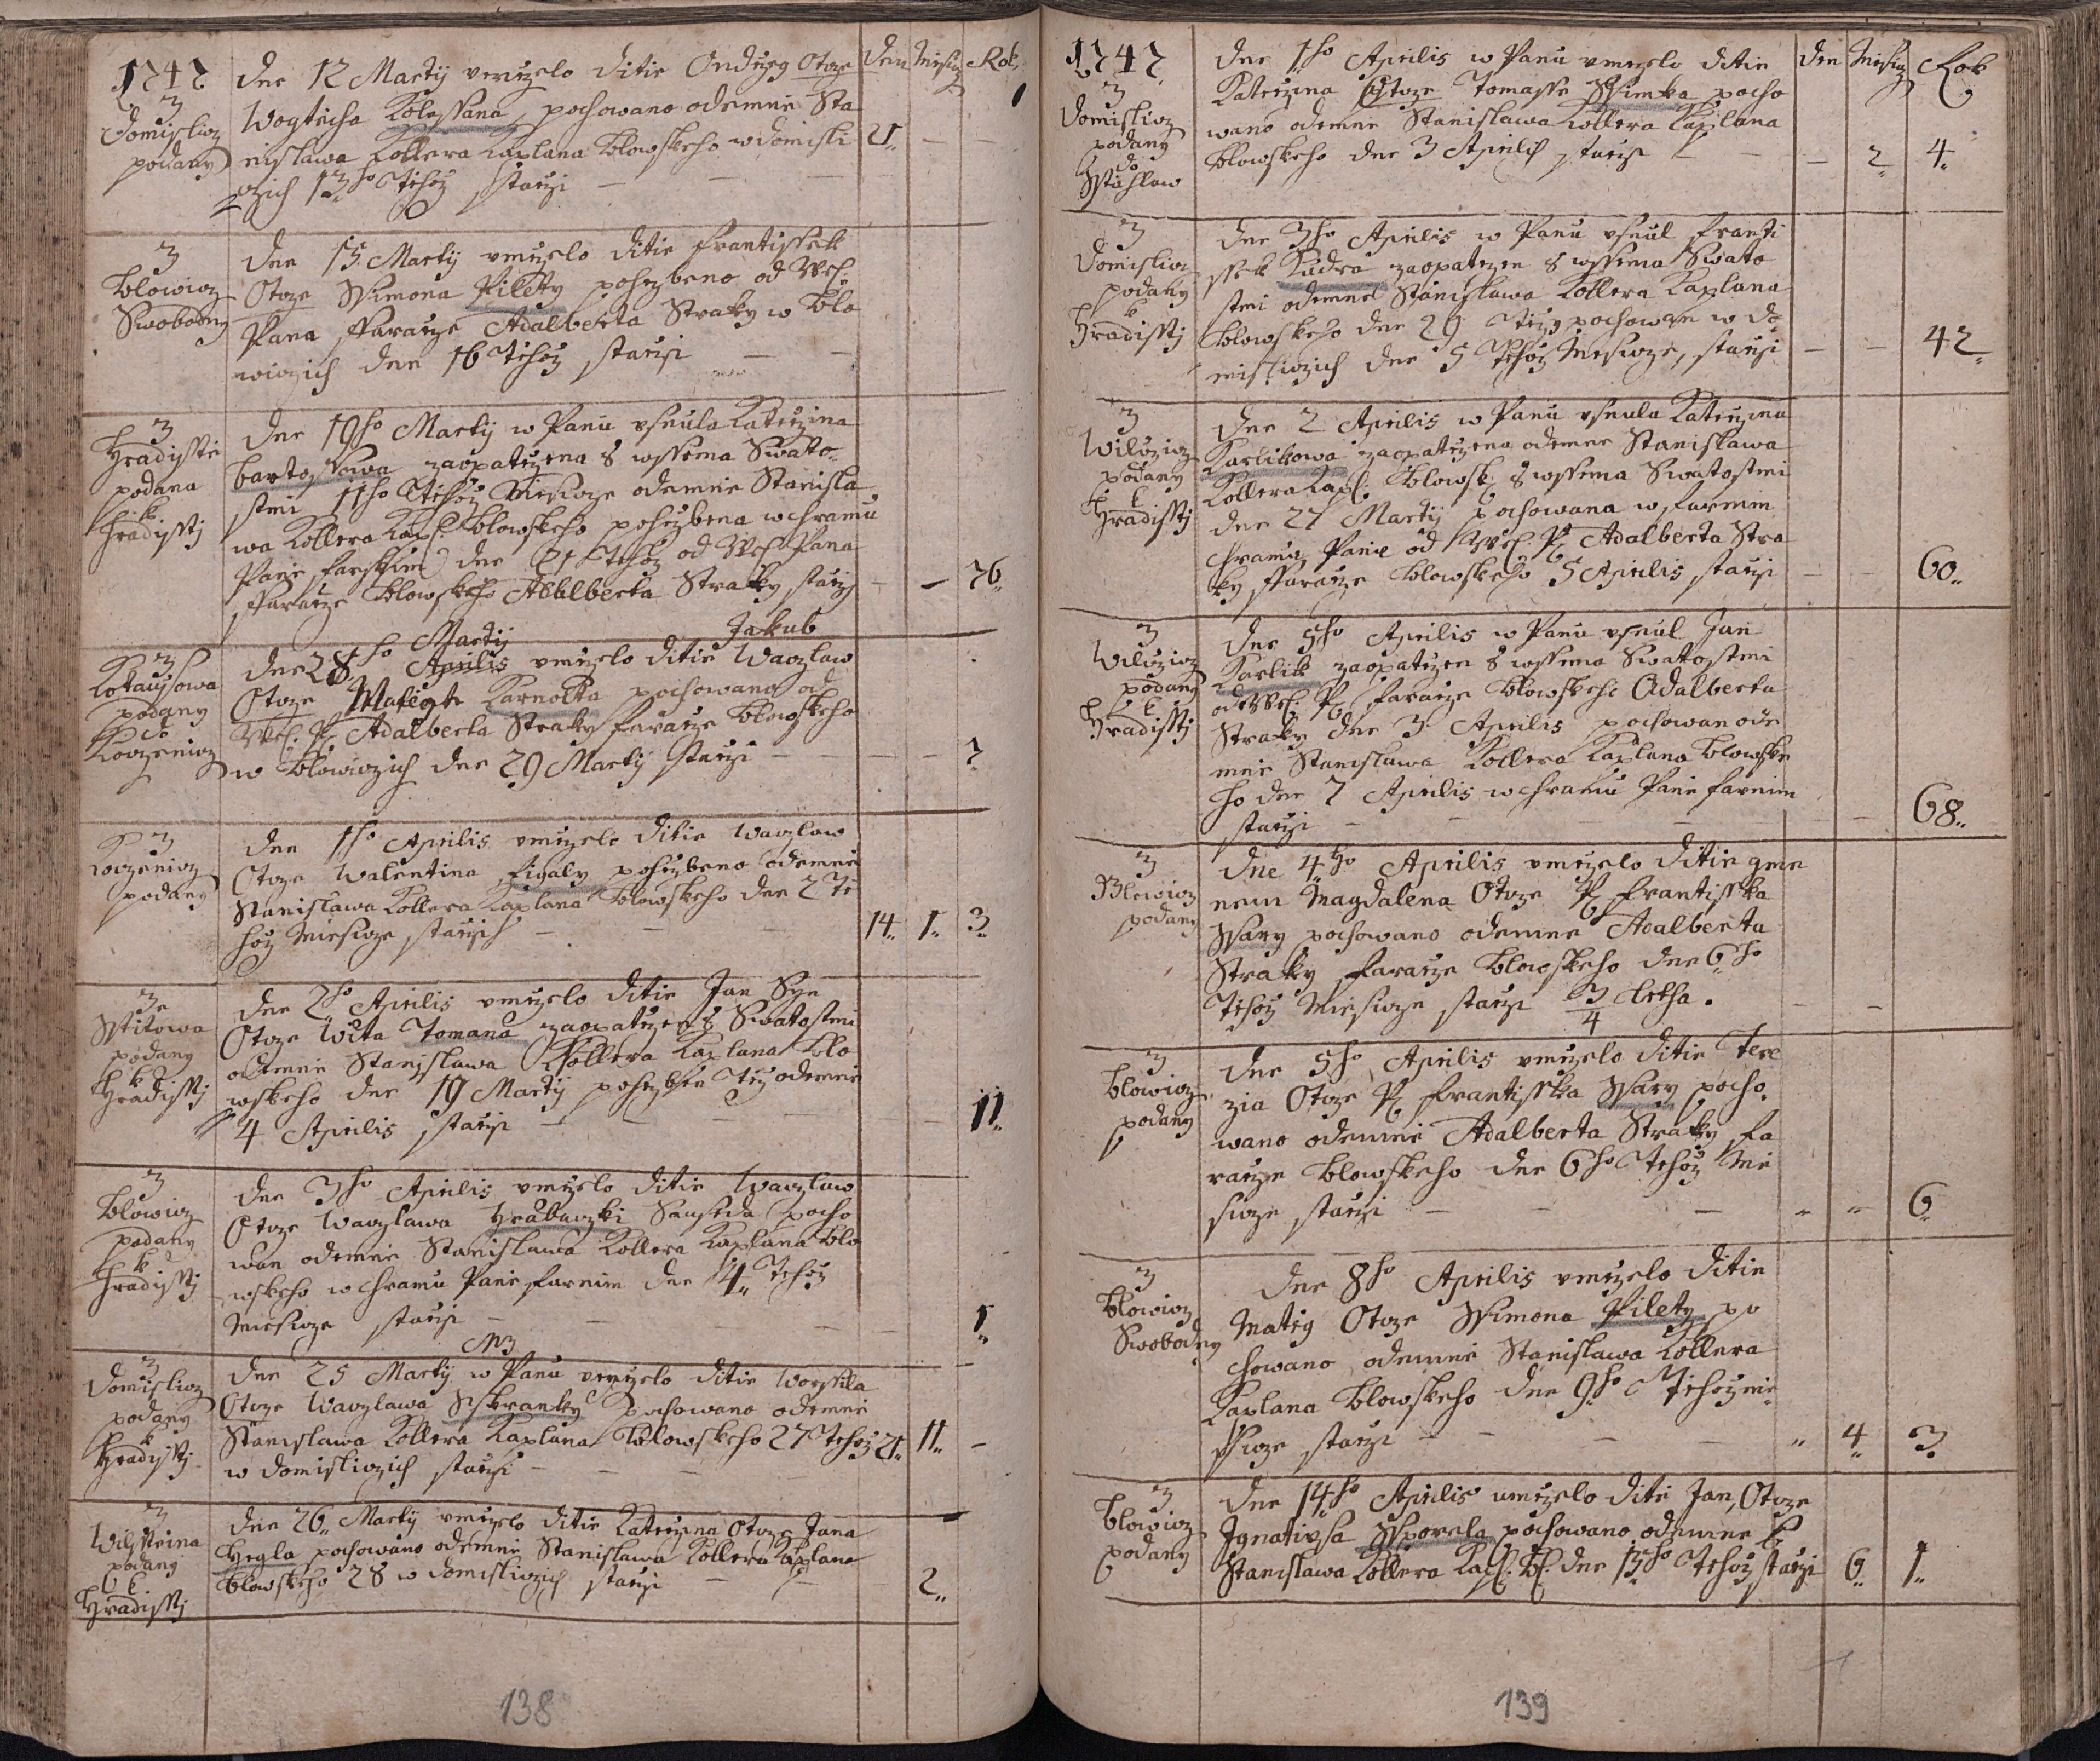 1747
Dne 12 Martij umrzelo ditie Ondrzeg Otcze
Den Mesycz Rok
z
Domislicz
podany
Wogtecha Kolessana, pochowano odemne Sta
nislawa Kollera Kaplana blowskeho w domisli
czich 13ho Tehoz starzi — — — 21. — —
z
blowicz
Swobodny
Dne 15. Martij umrzelo ditie Frantissek
Otcze Ssimona Pilety pohrzbeno od Wel:
Pana Ffararze Adalberta Straky w blo
wiczich dne 16 Tehoz starzi — —
z
Hradisstie
podana
k
hradissti
Dne 19ho Martij w Panu usnula Katerzina
bartossowa zaopatrzena s wssema Swato
stmi 11ho Tehoz Miesicze odemne Stanisla
wa Kollera Kapl: blowskeho pohrzbena w chramu
Panie farskim dne 21 Tehoz od Wel: Pana
Ffararze blowskeho Adalberta Straky starzi — — 76
z
Kokarzowa
podany
do
Koczenicz
Dne 28ho Martij Aprilis umrzelo ditie Jakub Waczlaw
Otcze Mategte Karnolta pochowano od
Wel: P. Adalberta Straky fararze blowskeho
w blowiczich dne 29 Martij starzi — — — 7
z
Koczenicz
podany
Dne 1ho Aprilis umrzelo ditie Waczlaw
Otcze Walentina Figaly pohrzbeno odemne
Stanislawa Kollera Kaplana blowskeho dne 2 Te
hoz Miesicze starzich — — — 14. 1. 3.
ze
Sstitowa
podany
k
Hradissti
Dne 2ho Aprilis umrzelo ditie Jan Syn
Otcze Wita Tomana zaopatrzen s Swatostmi
odemne Stanislawa Kollera Kaplana blo
wskeho dne 19 Martij pohrzben tez odemne
4 Aprilis starzi — — — 11.
z
blowicz
podany
k
hradissti
Dne 3ho Aprilis umrzelo ditie Waczlaw
Otcze Waczlawa Hrabaczki Sauseda pocho
wan odemne Stanislawa Kollera Kaplana blo
wskeho w chramu Panie farnim dne 4. Tehoz
Miesicze starzi — — — 1
NB
z
Domislicz
podany
k
Hradissti
Dne 25 Martij w Panu umrzelo ditie Worssila
Otcze Waczlawa Sskranky pochowano odemne
Stanislawa Kollera Kaplana blowskeho 27 Tehoz 21. 11. —
w domisliczich starzi — — —
z
Wilssteina
podany
k
Hradissti
Dne 26. Martij umrzelo ditie Katerzina Otcze Jana
Hegla pochowano odemne Stanislawa Kollera Kaplana
blowskeho 28 w domisliczich starzi — — 2.
138
1747
Dne 1ho Aprilis w Panu umrzelo ditie
Den Mesycz Rok
z
Domislicz
podany
do
Sstahlaw
Katerzina Otcze Tomasse Ssimka pocho
wano odemne Stanislawa Kollera Kaplana
blowskeho dne 3 Aprilis starzi — — 2. 4.
z
Domislicz
podany
k
hradissti
Dne 3ho Aprilis w Panu usnul Franti
ssek Kudra zaopatrzen s wssema Swato
stmi odemne Stanislawa Kollera Kaplana
blowskeho dne 29 pochowan w do
misliczich dne 5 Tehoz Miesicze, starzi — — 42.
z
Wilczicz
podany
k
Hradissti
Dne 2 Aprilis w Panu usnula Katerzina
Karlikowa zaopatrzena odemne Stanislawa
Kollera Kapl: blowsk: s wssema Swatostmi
dne 27 Martij pochowana w farnim
chramu Panie od Wel: P. Adalberta Stra
ky Ffararze blowskeho 5 Aprilis starzi — — 60.
z
Wilczicz
podany
k
Hradissti
Dne 5ho Aprilis w Panu usnul Jan
Karlik zaopatrzen s wssema Swatostmi
od Wel: P. fararze blowskeho Adalberta
Straky dne 3 Aprilis pochowan ode
mne Stanislawa Kollera Kaplana blowske
ho dne 7 Aprilis w chramu Panie farnim
starzi — — — 68.
z
Blowicz
podany
Dne 4ho Aprilis umrzelo ditie gme
nem Magdalena Otcze P. Frantisska
Ssary pochowano odemne Adalberta
Straky fararze blowskeho dne 6ho
Tehoz Miesicze starzi 3/4 letha. — —
z
blowicz
podany
Dne 5ho Aprilis umrzelo ditie Tere
zia Otcze P. Frantisska Ssary pocho
wano odemne Adalberta Straky fa
rarze blowskeho dne 6ho Tehoz Mie
sicze starzi — — — 6
z
blowicz
Swobodny
Dne 8ho Aprilis umrzelo ditie
Matieg Otcze Ssimona Pilety po
chowano odemne Stanislawa Kollera
Kaplana blowskeho dne 9ho Tehoz mie
sicze starzi — — — 4 3.
z
blowicz
podany
Dne 14ho Aprilis umrzelo ditie Jan, Otcze
Ignatiusa Ssporela pochowano odemne
Stanislawa Kollera Kapl: bl: dne 15ho Tehoz starzi 6. 1.
139